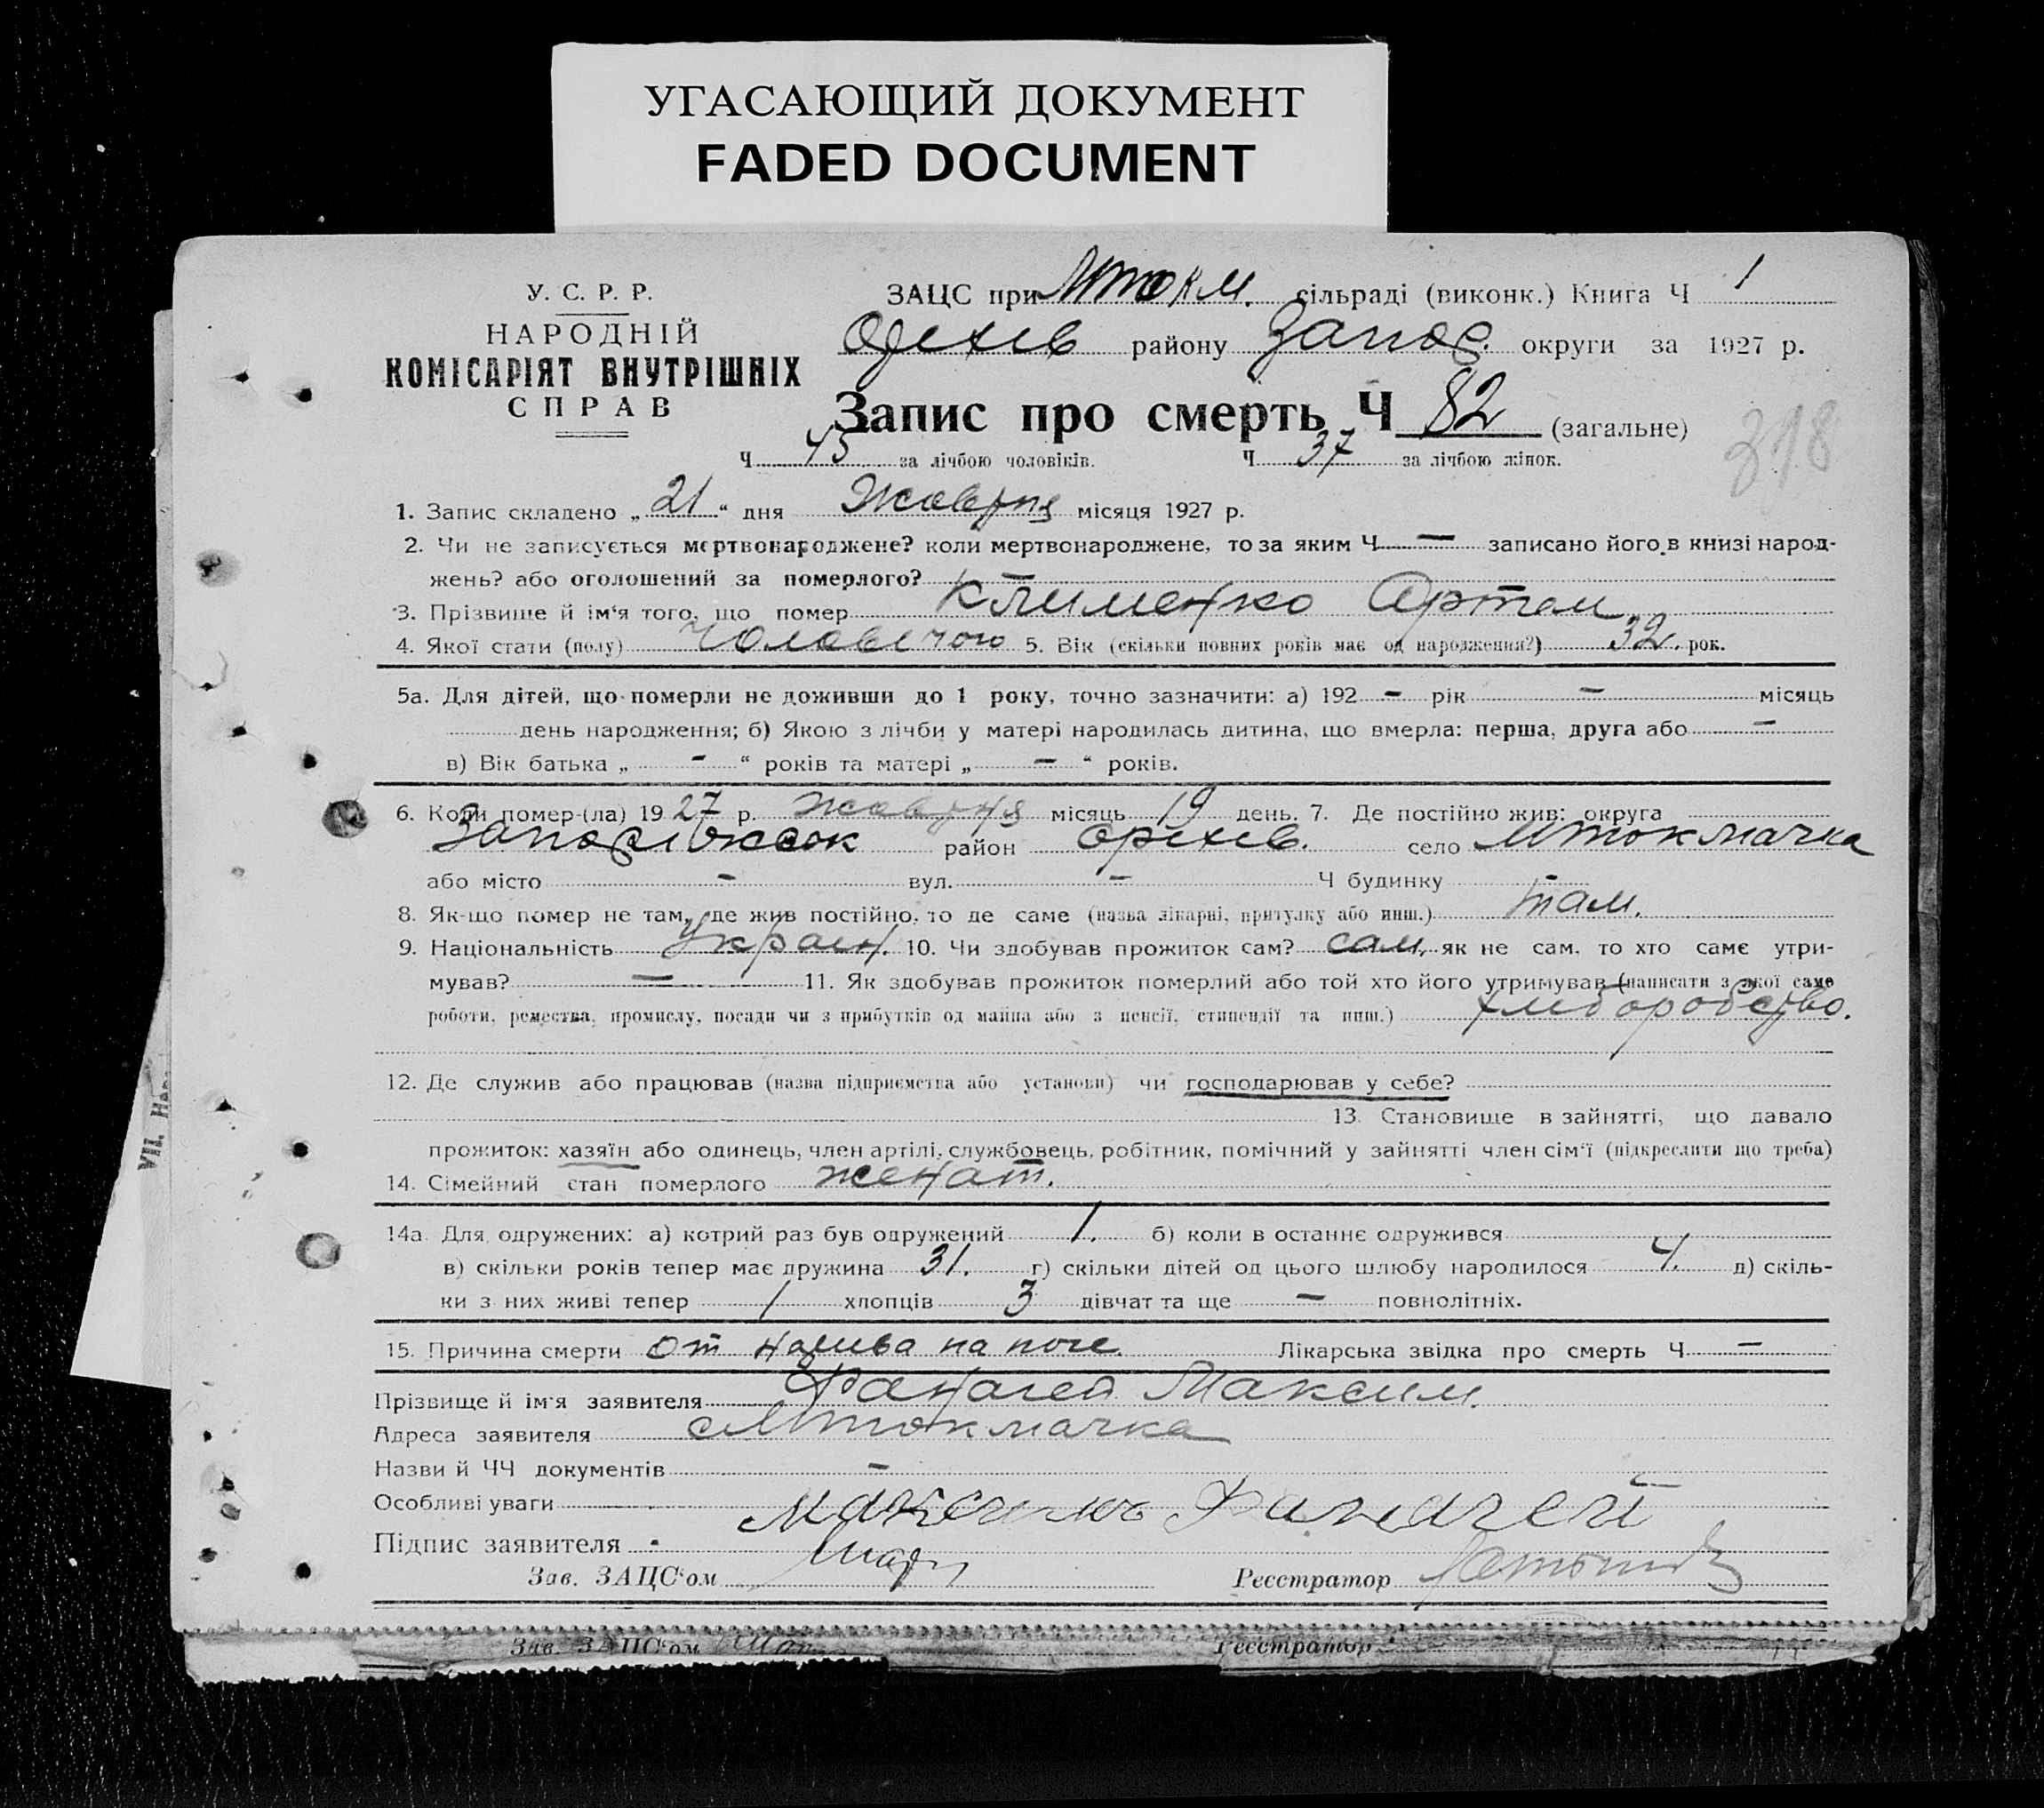 УГАСАЮЩИЙ ДОКУМЕНТ
FADED DOCUMENT
У. С. Р. Р.
НАРОДНІЙ
КОМІСАРІЯТ ВНУТРІШНІХ
СПРАВ
ЗАЦС при Мток м. сільраді (виконк.) Книга Ч 1
Оріхів району Запор. округи за 1927 р.
Запис про смерть Ч 82 (загальне)
318
Ч 45 за лічбою чоловіків. Ч 37 за лічбою жінок.
1. Запис складено „ 21 “ дня Жовтня місяця 1927 р.
2. Чи не записується мертвонароджене? коли мертвонароджене, то за яким Ч — записано його в книзі народ-
жень? або оголошений за померлого?
3. Прізвище й ім‘я того, що помер Клименко Артем
4. Якої стати (полу) чоловічою 5. Вік (скільки повних років має од народження?) 32. рок.
5а. Для дітей, що померли не доживши до 1 року, точно зазначити: а) 192 - рік - місяць
день народження; б) Якою з лічби у матері народилась дитина, що вмерла: перша, друга або -
в) Вік батька „ - “ років та матері „ - “ років.
6. Коли помер-(ла) 1927 р. жовтня місяць 19 день. 7. Де постійно жив: округа
Запоріжжок район Оріхів. село Мтокмачка
або місто - вул. - Ч будинку -
8. Як-що помер не там, де жив постійно, то де саме (назва лікарні, притулку або инш.) там.
9. Національність Україн. 10. Чи здобував прожиток сам? сам, як не сам, то хто саме утри-
мував? — 11. Як здобував прожиток померлий або той хто його утримував (написати з якої саме
роботи, ремества, промислу, посади чи з прибутків од майна або з пенсії, стипендії та инш.) хліборобство.
12. Де служив або працював (назва підприємства або установи) чи господарював у себе?
13. Становище в зайнятті, що давало
прожиток: хазяїн або одинець, член артілі, службовець, робітник, помічний у зайнятті член сім‘ї (підкреслити що треба)
14. Сімейний стан померлого женат.
14а. Для одружених: а) котрий раз був одружений 1. б) коли в останнє одружився
в) скільки років тепер має дружина 31. г) скільки дітей од цього шлюбу народилося 4. д) скіль-
ки з них живі тепер 1 хлопців 3 дівчат та ще — повнолітніх.
15. Причина смерти от на ноге. Лікарська звідка про смерть Ч -
Прізвище й ім‘я заявителя Фанагей Максим.
Адреса заявителя с Мтокмачка
Назви й ЧЧ документів -
Особливі уваги
Підпис заявителя Максимъ Фанагей
Зав. ЗАЦС‘ом Реєстратор
Зав. ЗАЦС‘ом Реєстратор
VII. На